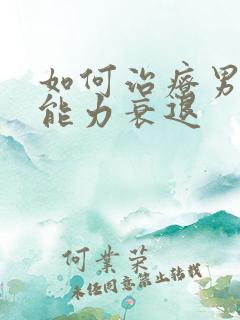 如何治疗男
能力衰退
何業荣
未经同意禁止转载